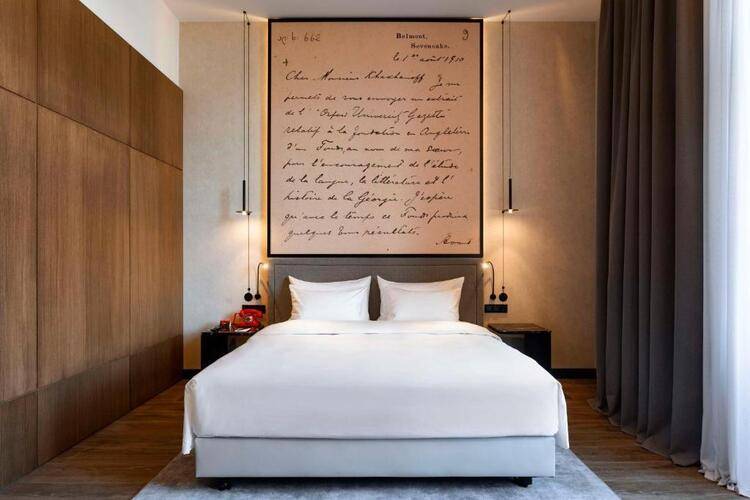 No. b. 662
9
Belmont,
Sevenoaks.
le 1er août 1910
Cher Monsieur Khakhanoff Je me
permets de vous envoyer un extrait
de l'"Oxford University Gazette"
relatif à la fondation en Angleterre
d'un Fonds, au nom de ma Soeur,
pour l'encouragement de l'étude
de la langue, la littérature et l'
histoire de la Géorgie. J'espère
qu'avec le temps ce Fonds produira
quelques bons résultats.